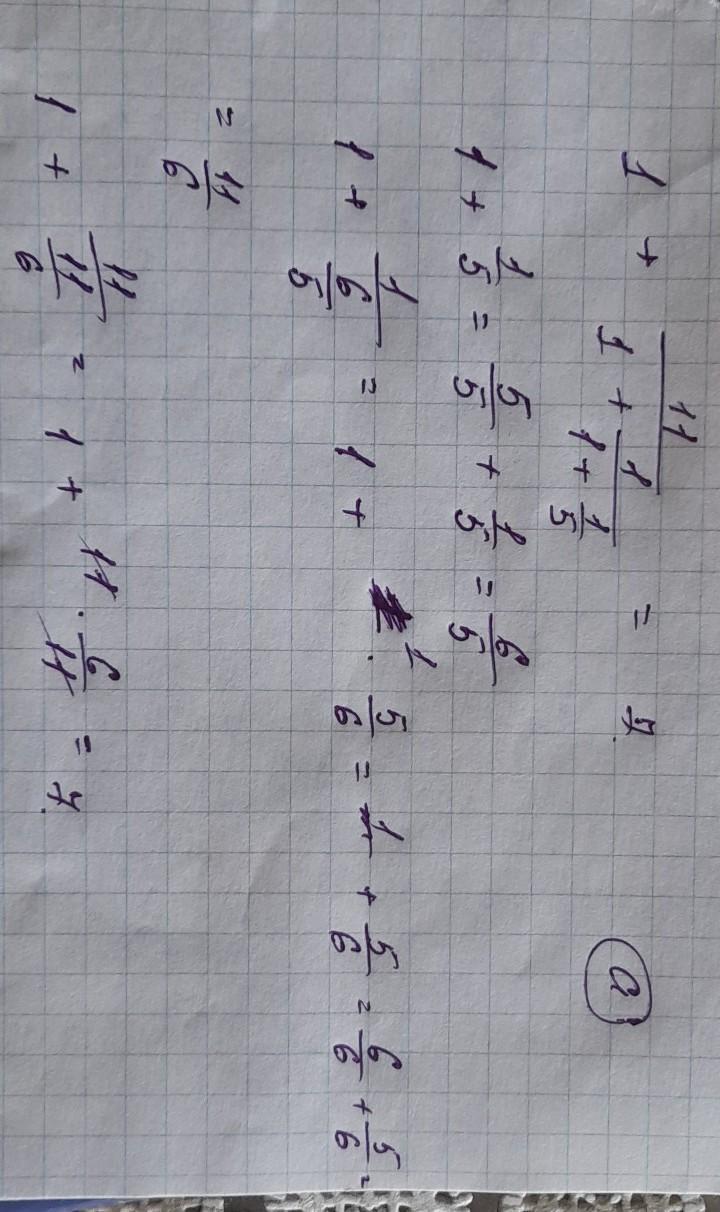 1 + 11/(1 + 1/(1 + 1/5)) = 7. a)
1 + 1/5 = 5/5 + 1/5 = 6/5
1 + 1/(6/5) = 1 + 1 · 5/6 = 1 + 5/6 = 6/6 + 5/6 =
= 11/6
1 + 11/(11/6) = 1 + 11 · 6/11 = 7.